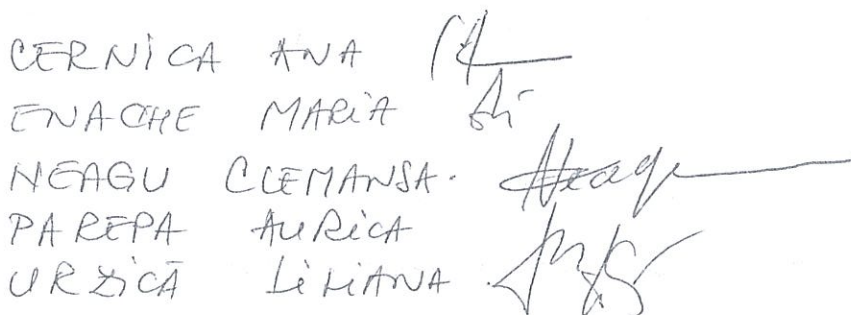 CERNICA ANA
ENACHE MARIA
NEAGU CLEMANSA. Neagu
PAREPA AURICA
URZICĂ LILIANA